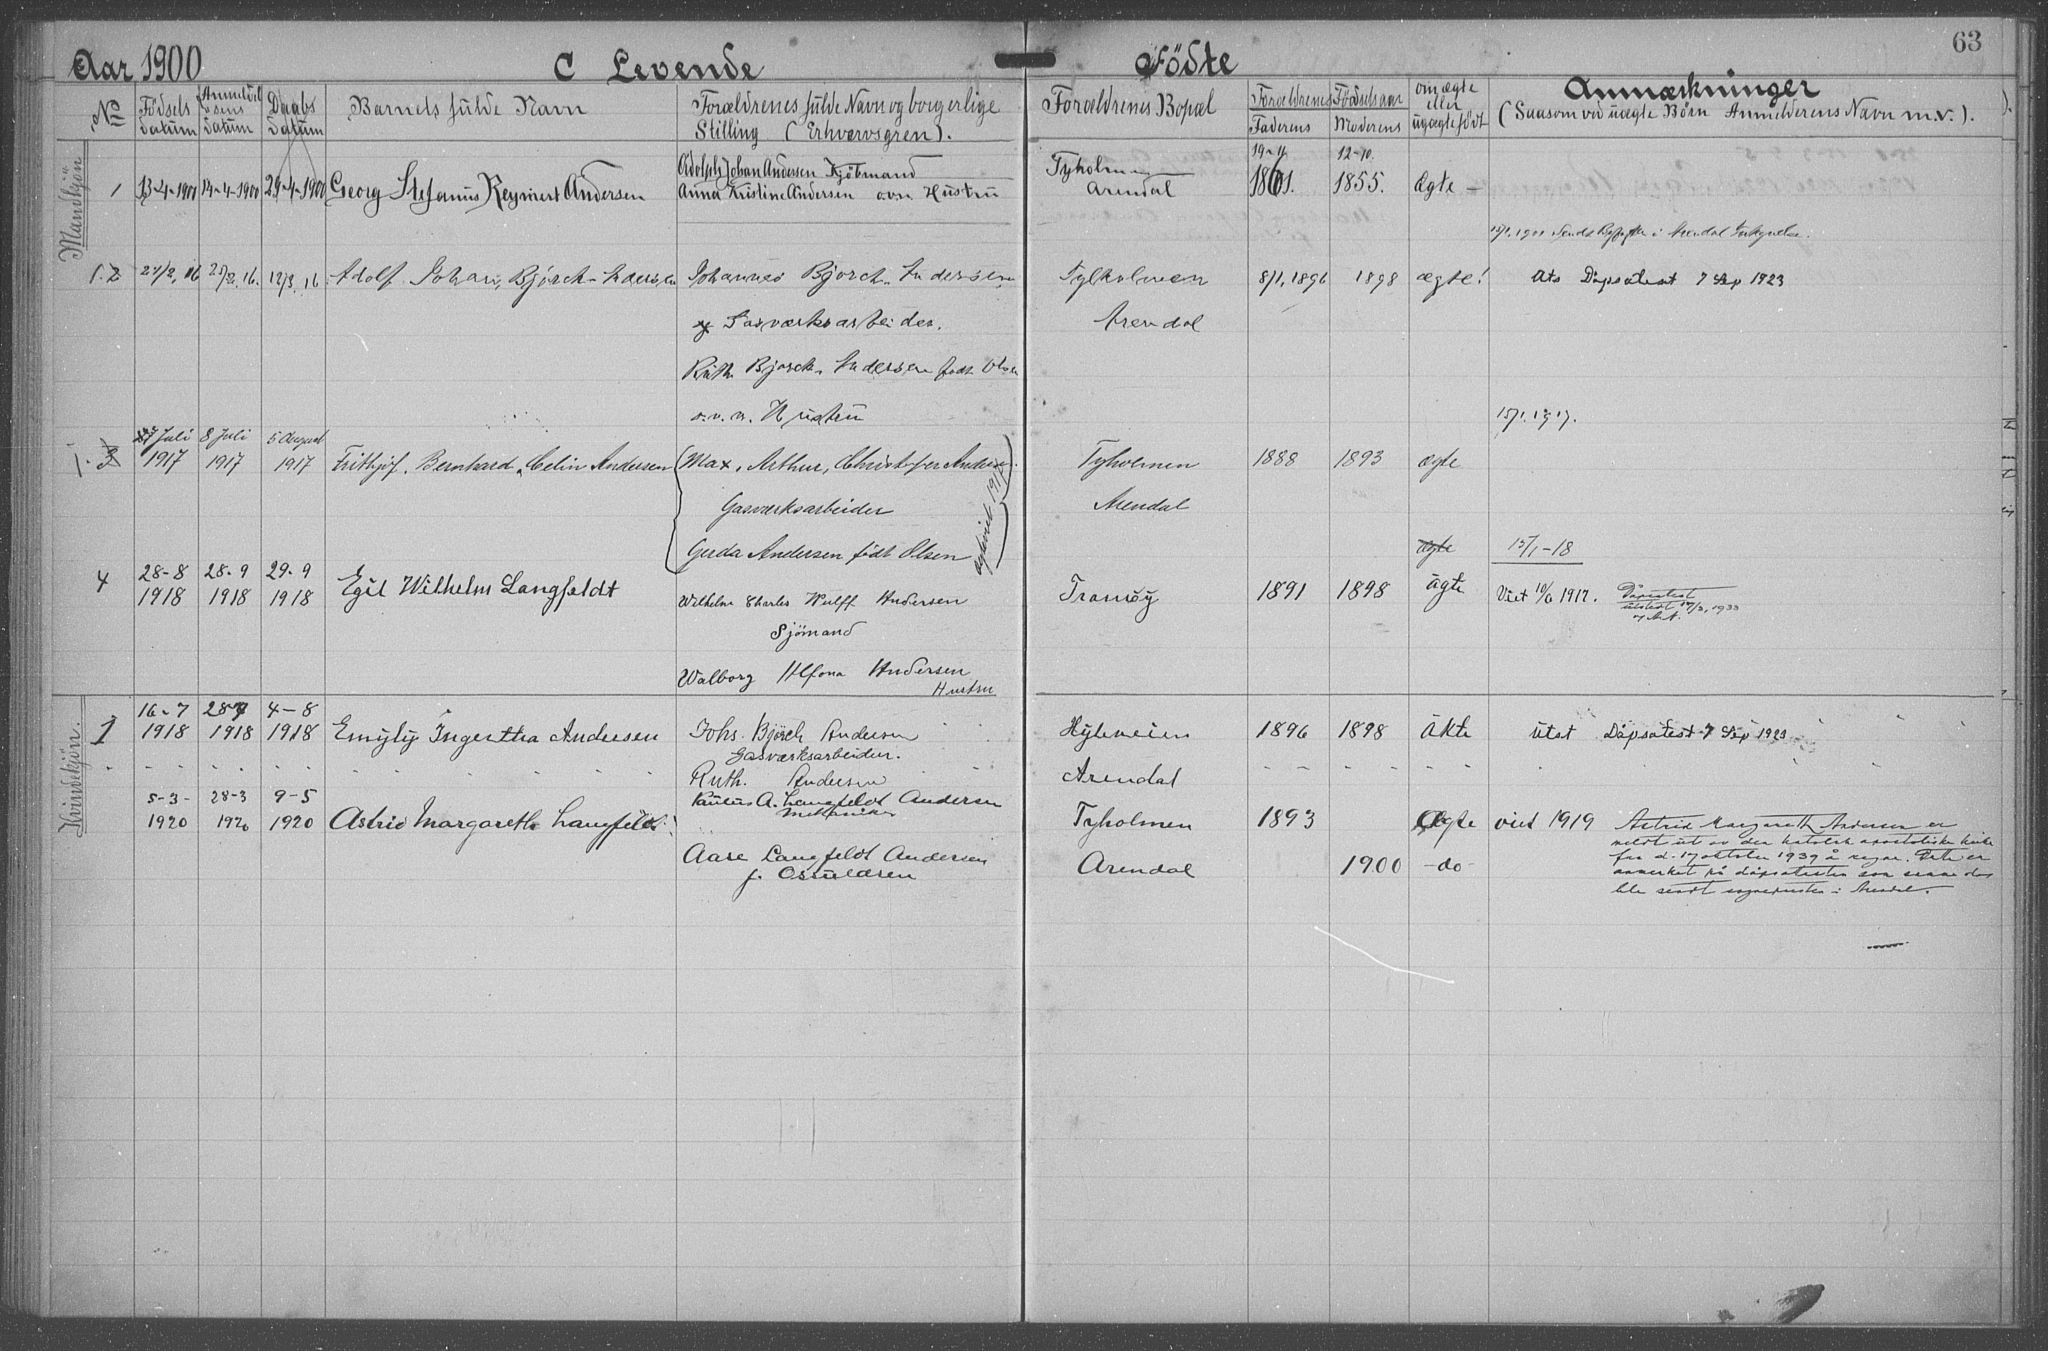 63
Aar 1900 C Levende Födte
No Födsels datum Anmeldelsens datum Daabs datum Barnets fulde Navn Forældrenes fulde Navn og borgerlige Stilling (Erhvervsgren). Forældrenes Bopæl Forældrenes Födselsaar Faderens Moderens om ægte eller uægte födt Anmærkninger (Saasom ved uægte Börn Anmelderens Navn m.v.).
Mandkjön
Adolph Johan Andersen Kjöbmand Tyholmen 19-4 12-10.
1 13-4-1900 14-4-1900 29-4-1900 Georg Stefanus Reynert Andersen Anna Kristine Andersen o.v.n Hustru Arendal 1861. 1855. Ægte -
15/1. 1900
1.2 27/2, 16 25/2, 16. 12/3, 16 Adolf Johan, Björck-Andersen Johannes Bjorck-Andersen Tylholmen 8/1, 1896 1898 ægte! Dåpsatest 7 Sep 1923
og Gasværksarbeider. Arendal
Ruth Bjorck-Andersen födt Olsen
o.v.n. Hustru 15/1. 1917.
7 Juli 8 Juli 5 August
1.3 1917 1917 1917 Frithjof. Bernhard, Celin Andersen Max, Arthur, Christofer Andersen Tyholmen 1888 1893 ægte
Gasværksarbeider Arendal
Gerda Andersen födt Olsen
ægteviet 1917
ægte 15/1-18
28-8 28-9 29-9
4 1918 1918 1918 Egil Wilhelm Langfeldt Wilhelm Charles Wulff Andersen Tromöy 1891 1898 ägte Viet 10/6 1917. Dåpsatest utstedt 17/3, 1933
Sjömand
Walborg Alfona Andersen
Hustru
Kvindekjön.
16-7 28-7 4-8
1 1918 1918 1918 Emyly Ingertha Andersen Johs. Björck Andersen Hyleveien 1896 1898 äkte utst Dåpsatest 7 Sep 1923
Gasværksarbeider.
Ruth. Andersen Arendal
5-3- 28-3 9-5 Paulus A. Langfeldt Andersen
1920 1920 1920 Astrid Margareth Langfeldt Mekaniker Tyholmen 1893 Ægte viet 1919 Astrid Margareth Andersen er
meldt ut av den katolsk apostoliske kirke
Aase Langfeldt Andersen Arendal 1900 -do- fra d. 17 oktober 1939 å regne. Dette er
f. Osuldsen anmerket på dåpsatesten som samme dag
ble sendt sognepresten i Arendal.